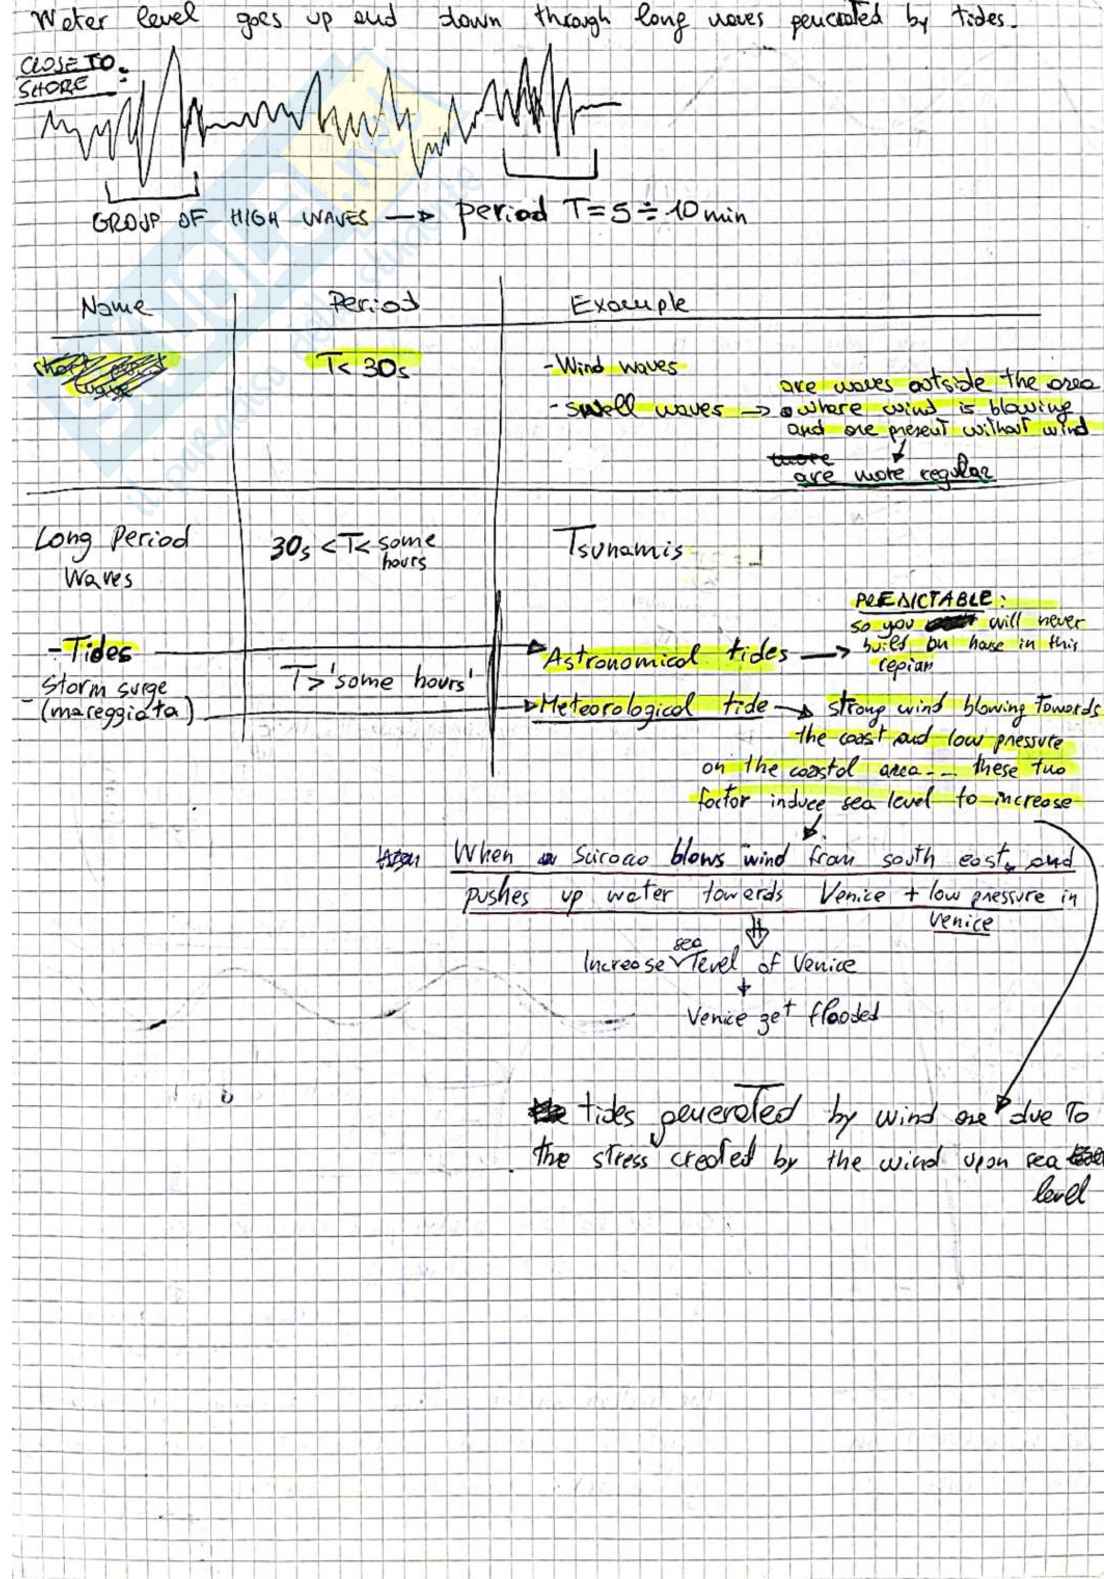 Water level goes up and down through long waves generated by tides.
CLOSE TO
SHORE :
GROUP OF HIGH WAVES → period T = 5 ÷ 10 min
Name Period Example
T < 30s - Wind waves
- swell waves → are waves outside the area
where wind is blowing
and are present without wind
are more regular
Long Period 30s < T < some Tsunamis
Waves hours
PREDICTABLE:
so you will never
build an house in this
region
- Tides Astronomical tides →
T > 'some hours'
- Storm surge
(mareggiata) Meteorological tide → strong wind blowing towards
the coast and low pressure
on the coastal area... these two
factor induce sea level to increase
When Scirocco blows wind from south east and
pushes up water towards Venice + low pressure in
Venice
Increase sea level of Venice
Venice get flooded
tides generated by wind are due to
the stress created by the wind upon sea
level